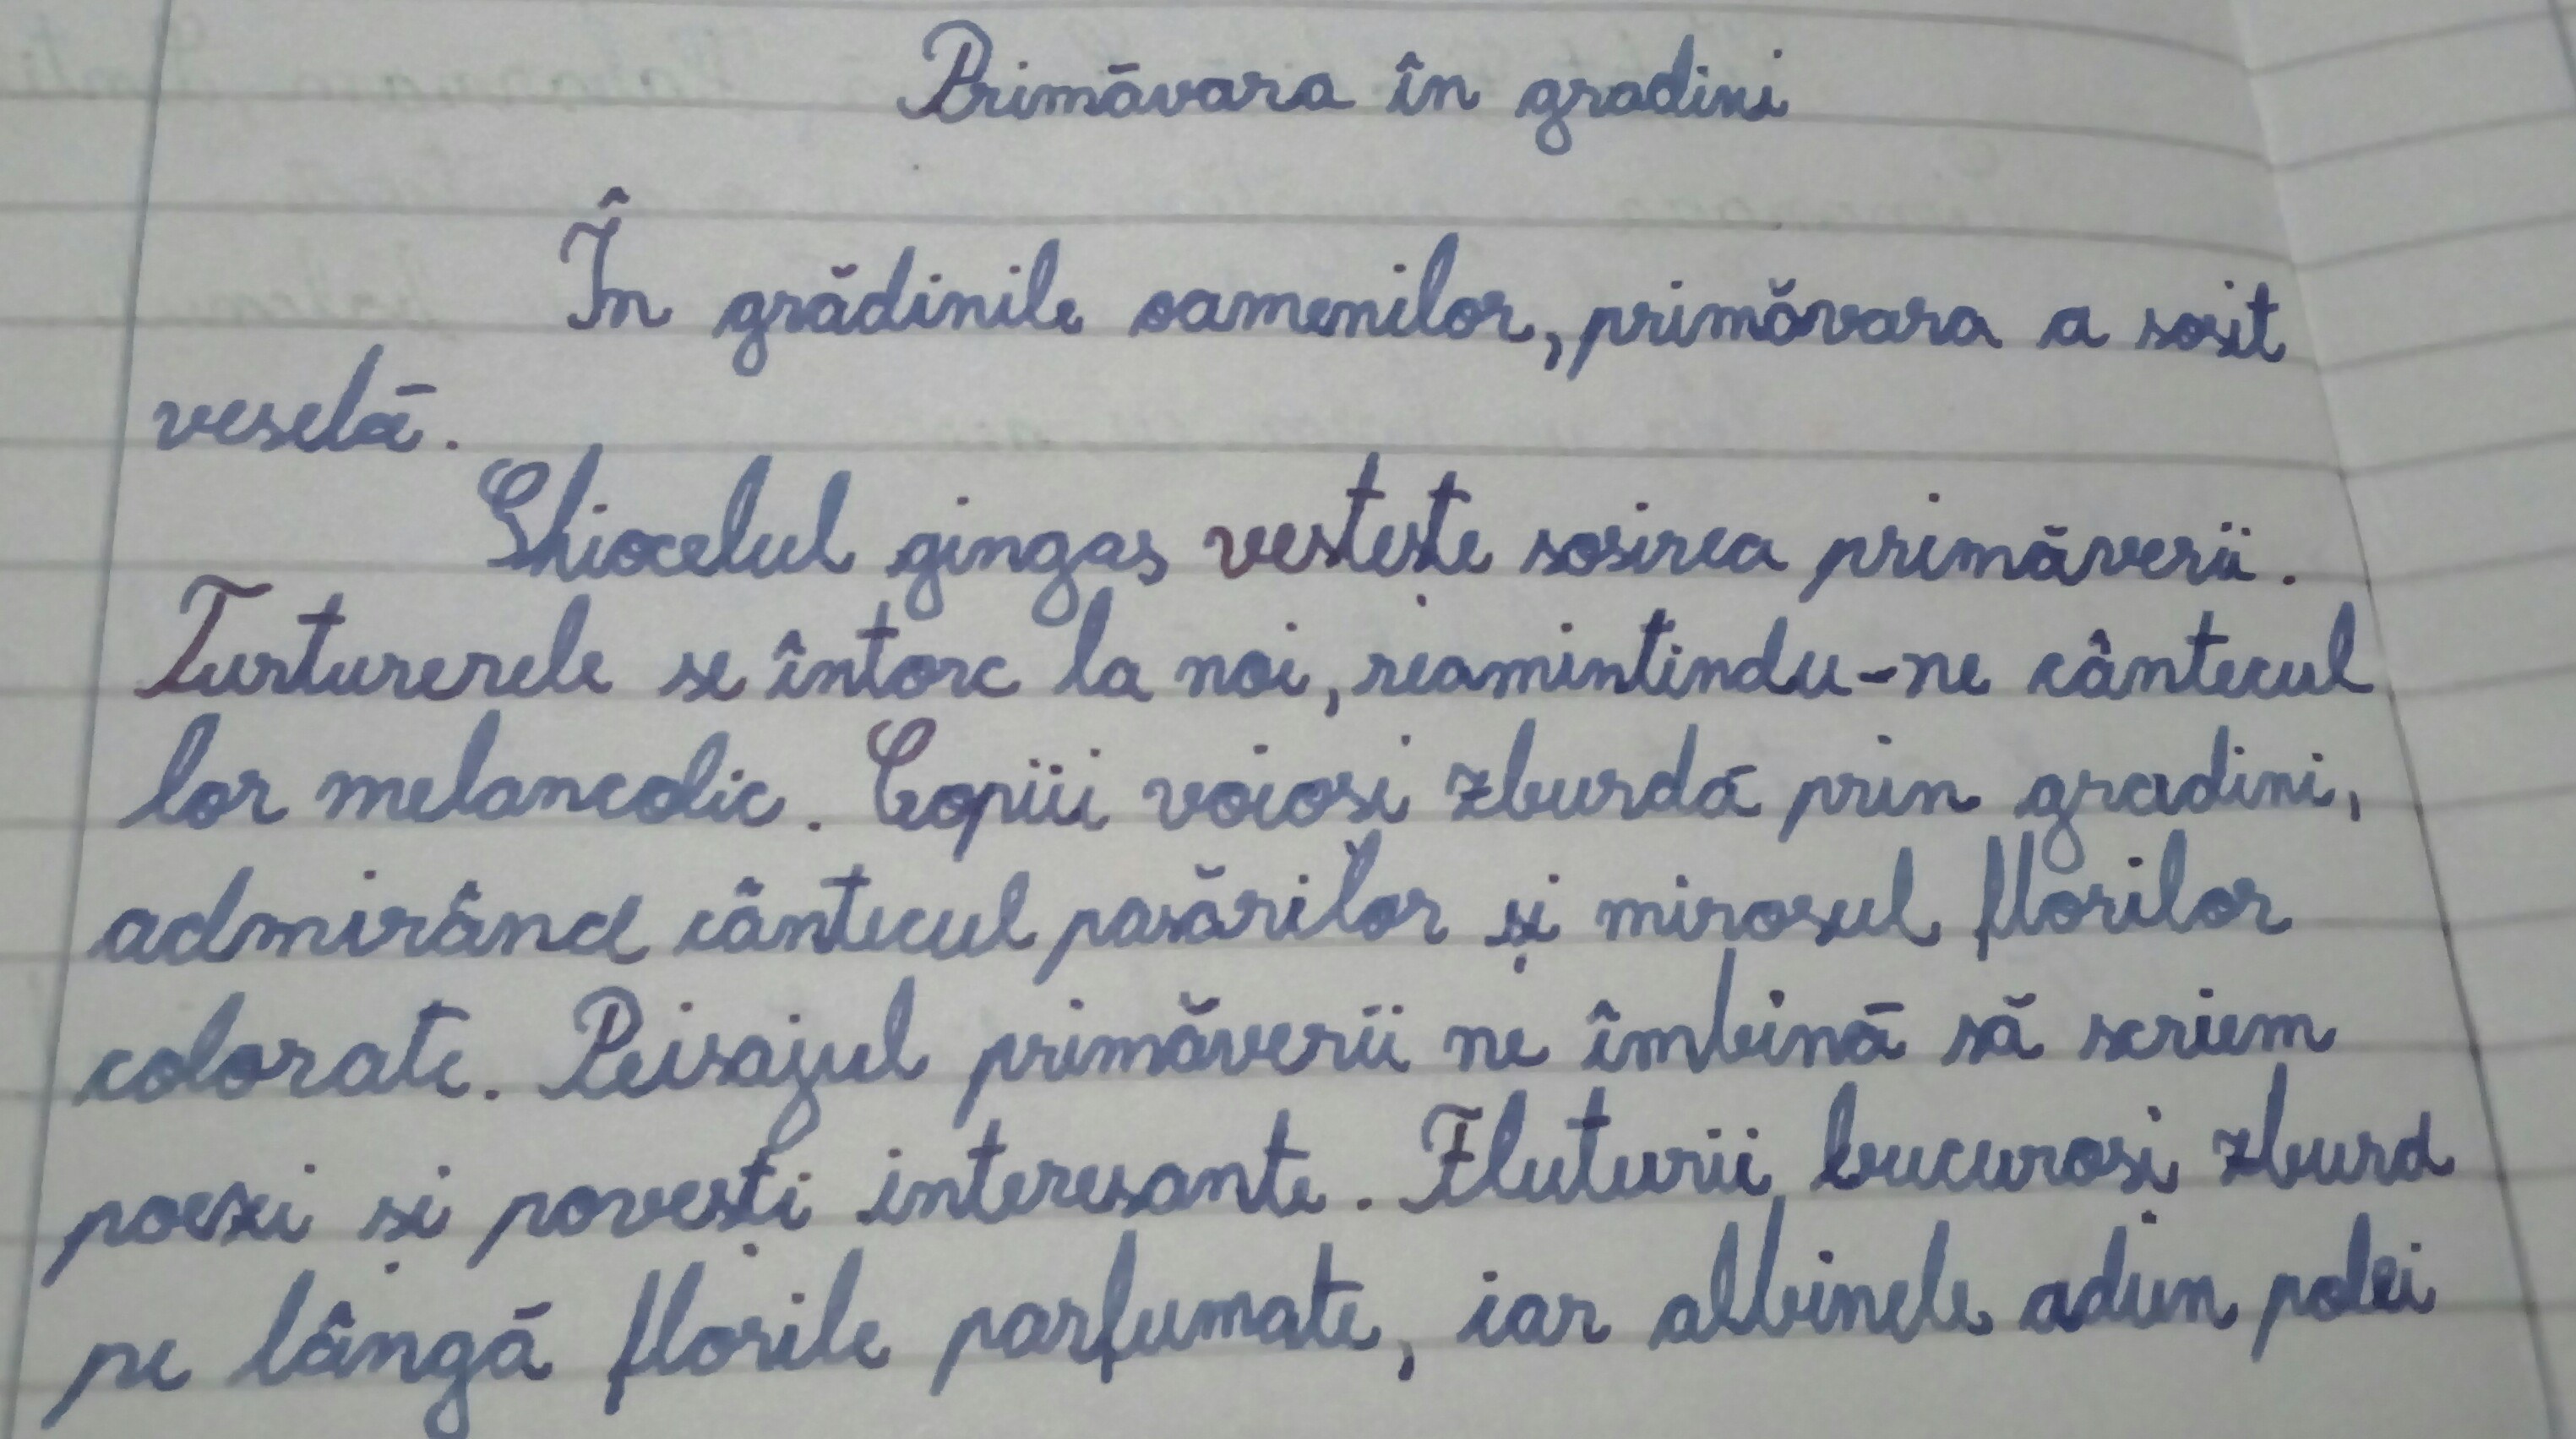 Primăvara în gradini
În grădinile oamenilor, primăvara a sosit
veselă.
Ghiocelul gingas vestește sosirea primăverii.
Turturerele se întorc la noi, reamintindu-ne cântecul
lor melancolic. Copiii voiosi zburdă prin gradini,
admirând cântecul pasărilor și mirosul florilor
colorate. Peisajul primăverii ne îmbină să scriem
poezi și povești interesante. Fluturii bucuroși zburd
pe lângă florile parfumate, iar albinele adun polei